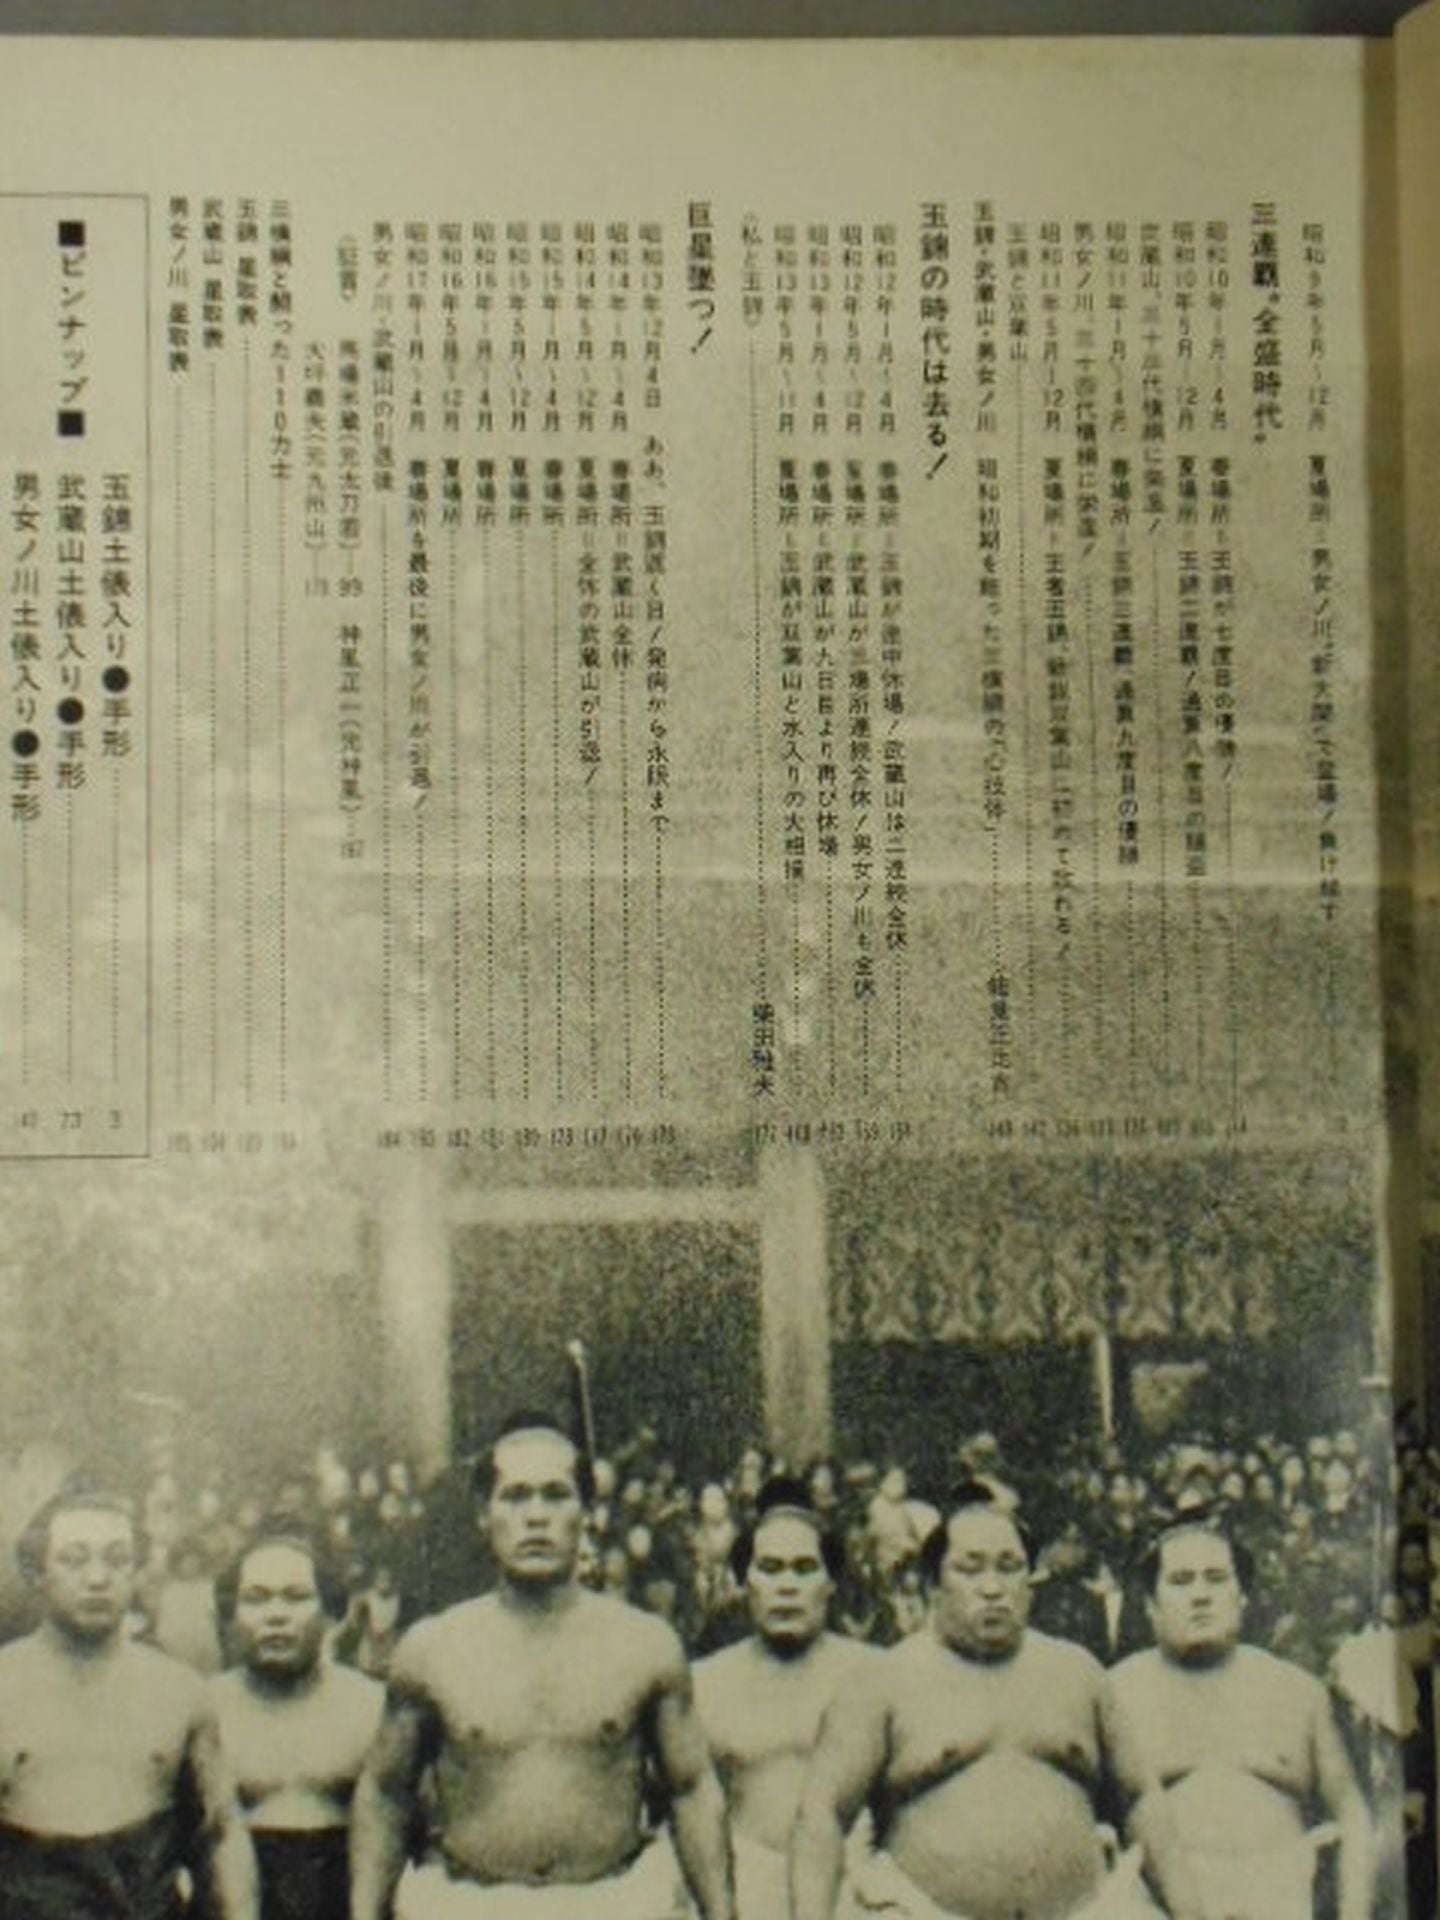 昭和9年5月〜12月 夏場所=男女ノ川、新大関で登場!負け越す
三連覇〝全盛時代〟
昭和10年1月〜4月 春場所=玉錦が七度目の優勝!
昭和10年5月〜12月 夏場所=玉錦二連覇!通算八度目の
武蔵山、三十三代横綱に栄進!
昭和11年1月〜4月 春場所=玉錦三連覇 通算九度目の優勝
男女ノ川、三十四代横綱に栄進!
昭和11年5月〜12月 夏場所=王者玉錦、新鋭双葉山に初めて敗れる!
玉錦と双葉山
玉錦・武蔵山・男女ノ川 昭和初期を飾った三横綱の「心技体」
玉錦の時代は去る!
昭和12年1月〜4月 春場所=玉錦が途中休場!武蔵山は二連続全休
昭和12年5月〜12月 夏場所=武蔵山が三場所連続全休!男女ノ川も全休 159
昭和13年1月〜4月 春場所=武蔵山が九日目より再び休場
昭和13年5月〜11月 夏場所=玉錦が双葉山と水入りの大相撲
〈私と玉錦〉 柴田雅夫
巨星墜つ!
昭和13年12月4日 ああ、玉錦逝く日!発病から永眠まで
昭和14年1月〜4月 春場所=武蔵山全休
昭和14年5月〜12月 夏場所=全休の武蔵山が引退!
昭和15年1月〜4月 春場所
昭和15年5月〜12月 夏場所
昭和16年1月〜4月 春場所
昭和16年5月〜12月 夏場所 182
昭和17年1月〜4月 春場所を最後に男女ノ川が引退!
男女ノ川・武蔵山の引退後 184
〈証言〉 馬場米蔵(元太刀若) 99 神風正一(元神風)
大坪義夫(元九州山)
三横綱と闘った110力士
玉錦 星取表
武蔵山 星取表
男女ノ川 星取表
■ピンナップ■
玉錦土俵入り●手形 3
武蔵山土俵入り●手形 73
男女ノ川土俵入り●手形